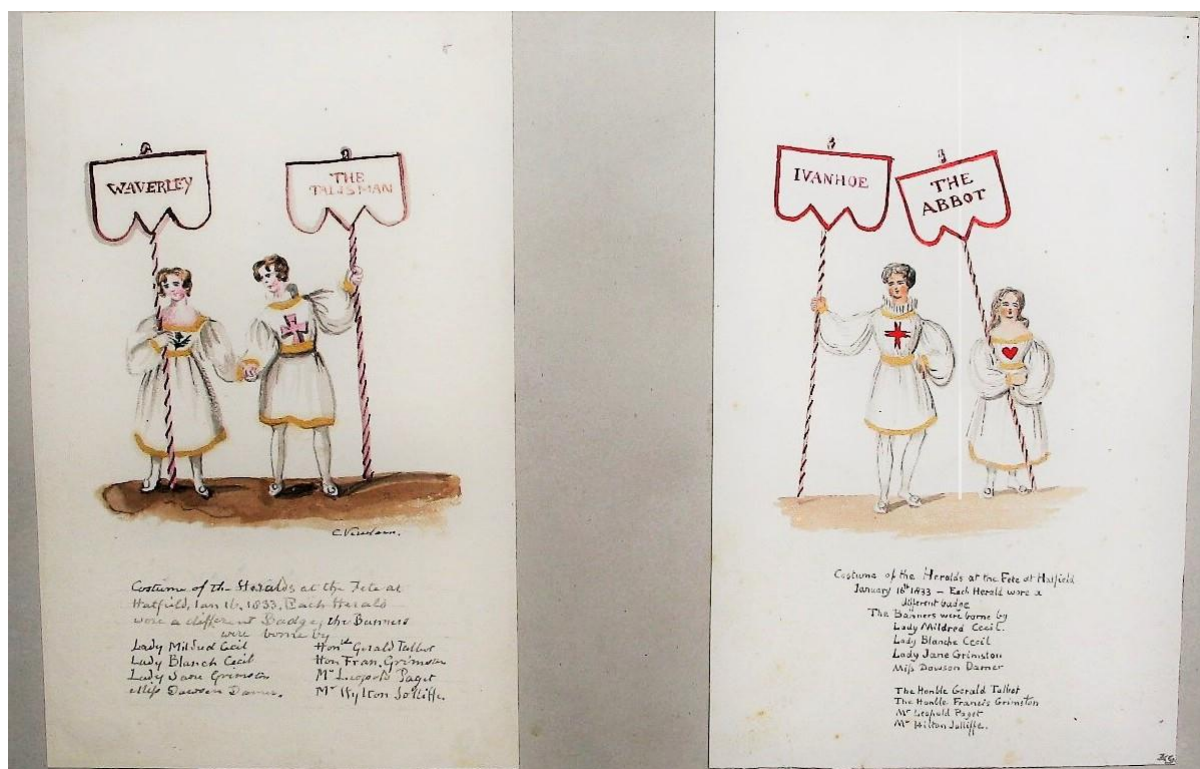 WAVERLEY
THE
TALISMAN
Costume of the Heralds at the Fete at
Hatfield, Jan 16, 1833, Each Herald
wore a different Badge, the Banners
were borne by
Lady Mildred Cecil
Lady Blanch Cecil
Lady Jane Grimston
Miss Dawson Damer.
Honble Gerald Talbot
Hon Fran. Grimston
Mr Leopold Paget
Mr Hylton Jolliffe.
IVANHOE
THE
ABBOT
Costume of the Heralds at the Fete at Hatfield
January 16th 1833 – Each Herald wore a
different badge
The Banners were borne by
Lady Mildred Cecil.
Lady Blanche Cecil
Lady Jane Grimston
Miss Dowson Damer
The Honble Gerald Talbot
The Honble Francis Grimston
Mr Leopold Paget
Mr Hilton Jolliffe.